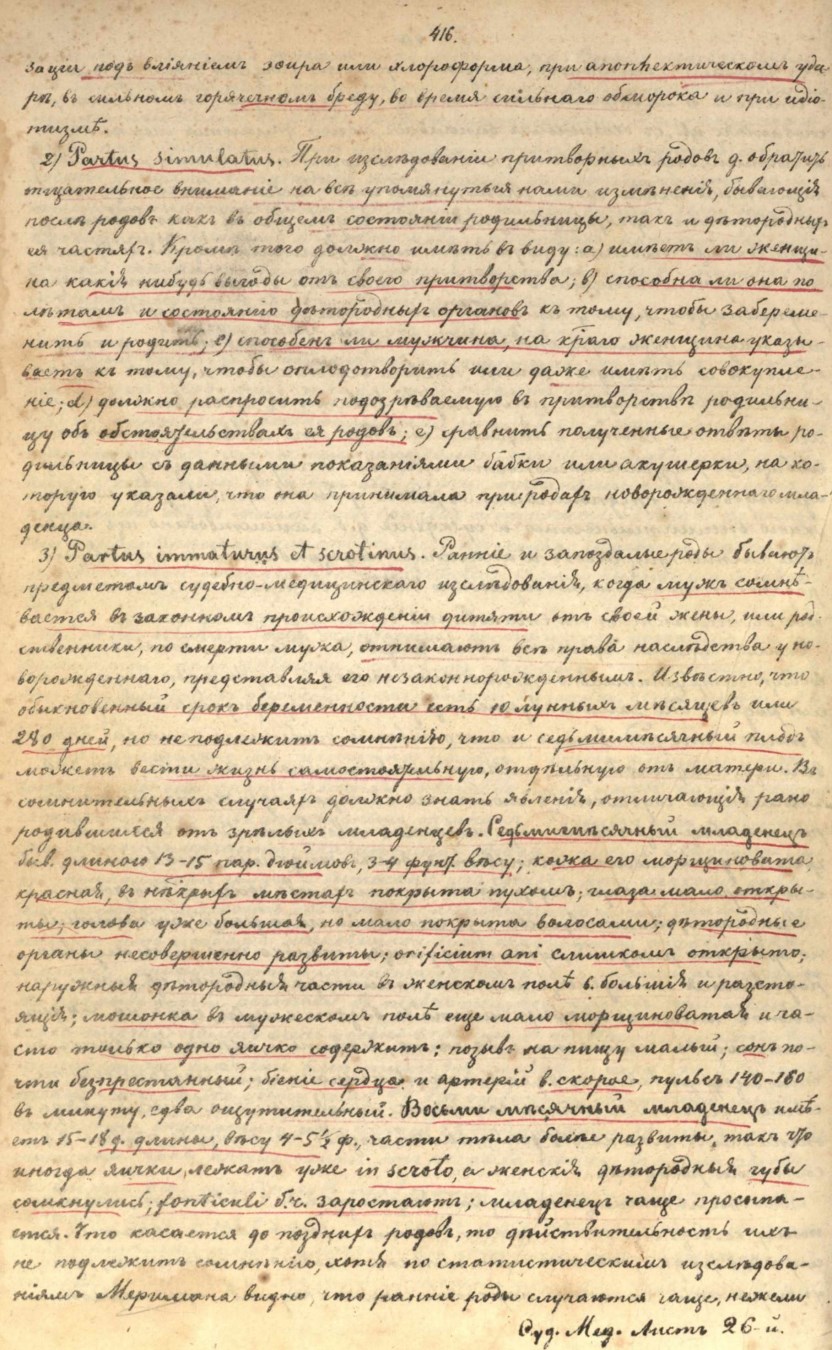 416.
зации подъ вліяніемъ эѳира или хлороформа, при апоплектическомъ уда-
рѣ, въ сильномъ горячечномъ бреду, во время сильнаго обморока и при идіо-
тизмѣ.
2) Partus simulatus. При изслѣдованіи притворныхъ родовъ д. обратить
тщательное вниманіе на всѣ упомянутыя нами измѣненія, бывающія
послѣ родовъ какъ въ общемъ состояніи родильницы, такъ и дѣтородныхъ
ея частяхъ. Кромѣ того должно имѣть въ виду: a) имѣетъ ли женщи-
на какія нибудь выгоды отъ своего притворства; b) способна ли она по
лѣтамъ и состоянію дѣтородныхъ органовъ къ тому, чтобы забереме-
нить и родить; c) способенъ ли мужчина, на кᲂраго женщина указы-
ваетъ къ тому, чтобы оплодотворить или даже имѣть совокупле-
ніе; d) должно распросить подозрѣваемую въ притворствѣ родильни-
цу объ обстоятельствахъ ея родовъ; e) сравнить полученные отвѣты ро-
дильницы съ данными показаніями бабки или акушерки, на ко-
торую указали, что она принимала при родахъ новорожденнаго мла-
денца.
3) Partus immaturus et scrotinus. Ранніе и запоздалые роды бываютъ
предметомъ судебно-медицинскаго изслѣдованія, когда мужъ сомнѣ-
вается въ законномъ происхожденіи дитяти отъ своей жены, или род-
ственники, по смерти мужа, отнимаютъ всѣ права наслѣдства у но-
ворожденнаго, представляя его незаконнорожденнымъ. Извѣстно, что
обыкновенный срокъ беременности есть 10 лунныхъ мѣсяцевъ или
280 дней, но не подлежитъ сомнѣнію, что и седьмимѣсячный плодъ
можетъ вести жизнь самостоятельную, отдѣльную отъ матери. Въ
сомнительныхъ случаяхъ должно знать явленія, отличающія рано
родившихся отъ зрѣлыхъ младенцевъ. Седьмимѣсячный младенецъ
быв. длиною 13-15 пар. дюймовъ, 3-4 фунт. вѣсу; кожа его морщиновата,
красная, въ нѣкᲂрыхъ мѣстахъ покрыта пухомъ; глаза мало откры-
ты; голова уже большая, но мало покрыта волосами; дѣтородные
органы несовершенно развиты; orificium ani слишкомъ открыто;
наружныя дѣтородныя части въ женскомъ полѣ б. большія и разсто-
ящія; мошонка въ мужескомъ полѣ еще мало морщиноватая и ча-
сто только одно яичко содержитъ; позывъ на пищу малый; сонъ по-
чти безпрестанный; біеніе сердца и артерій в. скорое, пульсъ 140-180
въ минуту, едва ощутительный. Восьмимѣсячный младенецъ имѣ-
етъ 15-18 д. длины, вѣсу 4-5½ ф., части тѣла болѣе развиты, такъ что
иногда яички лежатъ уже in scroto, а женскія дѣтородныя губы
сомкнулись; fonticuli б.ч. заростаютъ; младенецъ чаще просыпа-
ется. Что касается до позднихъ родовъ, то дѣйствительность ихъ
не подлежитъ сомнѣнію, хотя по статистическимъ изслѣдова-
ніямъ Меримана видно, что ранніе роды случаются чаще, нежели
Суд. Мед. Листъ 26-й.